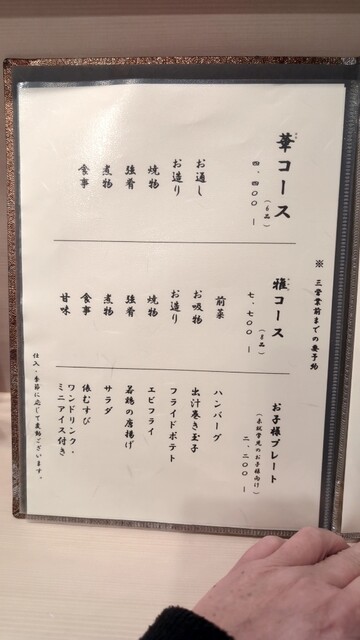 ※ 三営業前までの要予約
華コース
(6品)
四、四〇〇ー
お通し
お造り
焼物
強肴
煮物
食事
雅コース
(8品)
七、七〇〇ー
前菜
お吸物
お造り
焼物
強肴
煮物
食事
甘味
お子様プレート
(未就学児のお子様向け)
二、二〇〇ー
ハンバーグ
出汁巻き玉子
フライドポテト
エビフライ
若鶏の唐揚げ
サラダ
俵むすび
ワンドリンク・
ミニアイス付き
仕入・季節に応じて変動ございます。